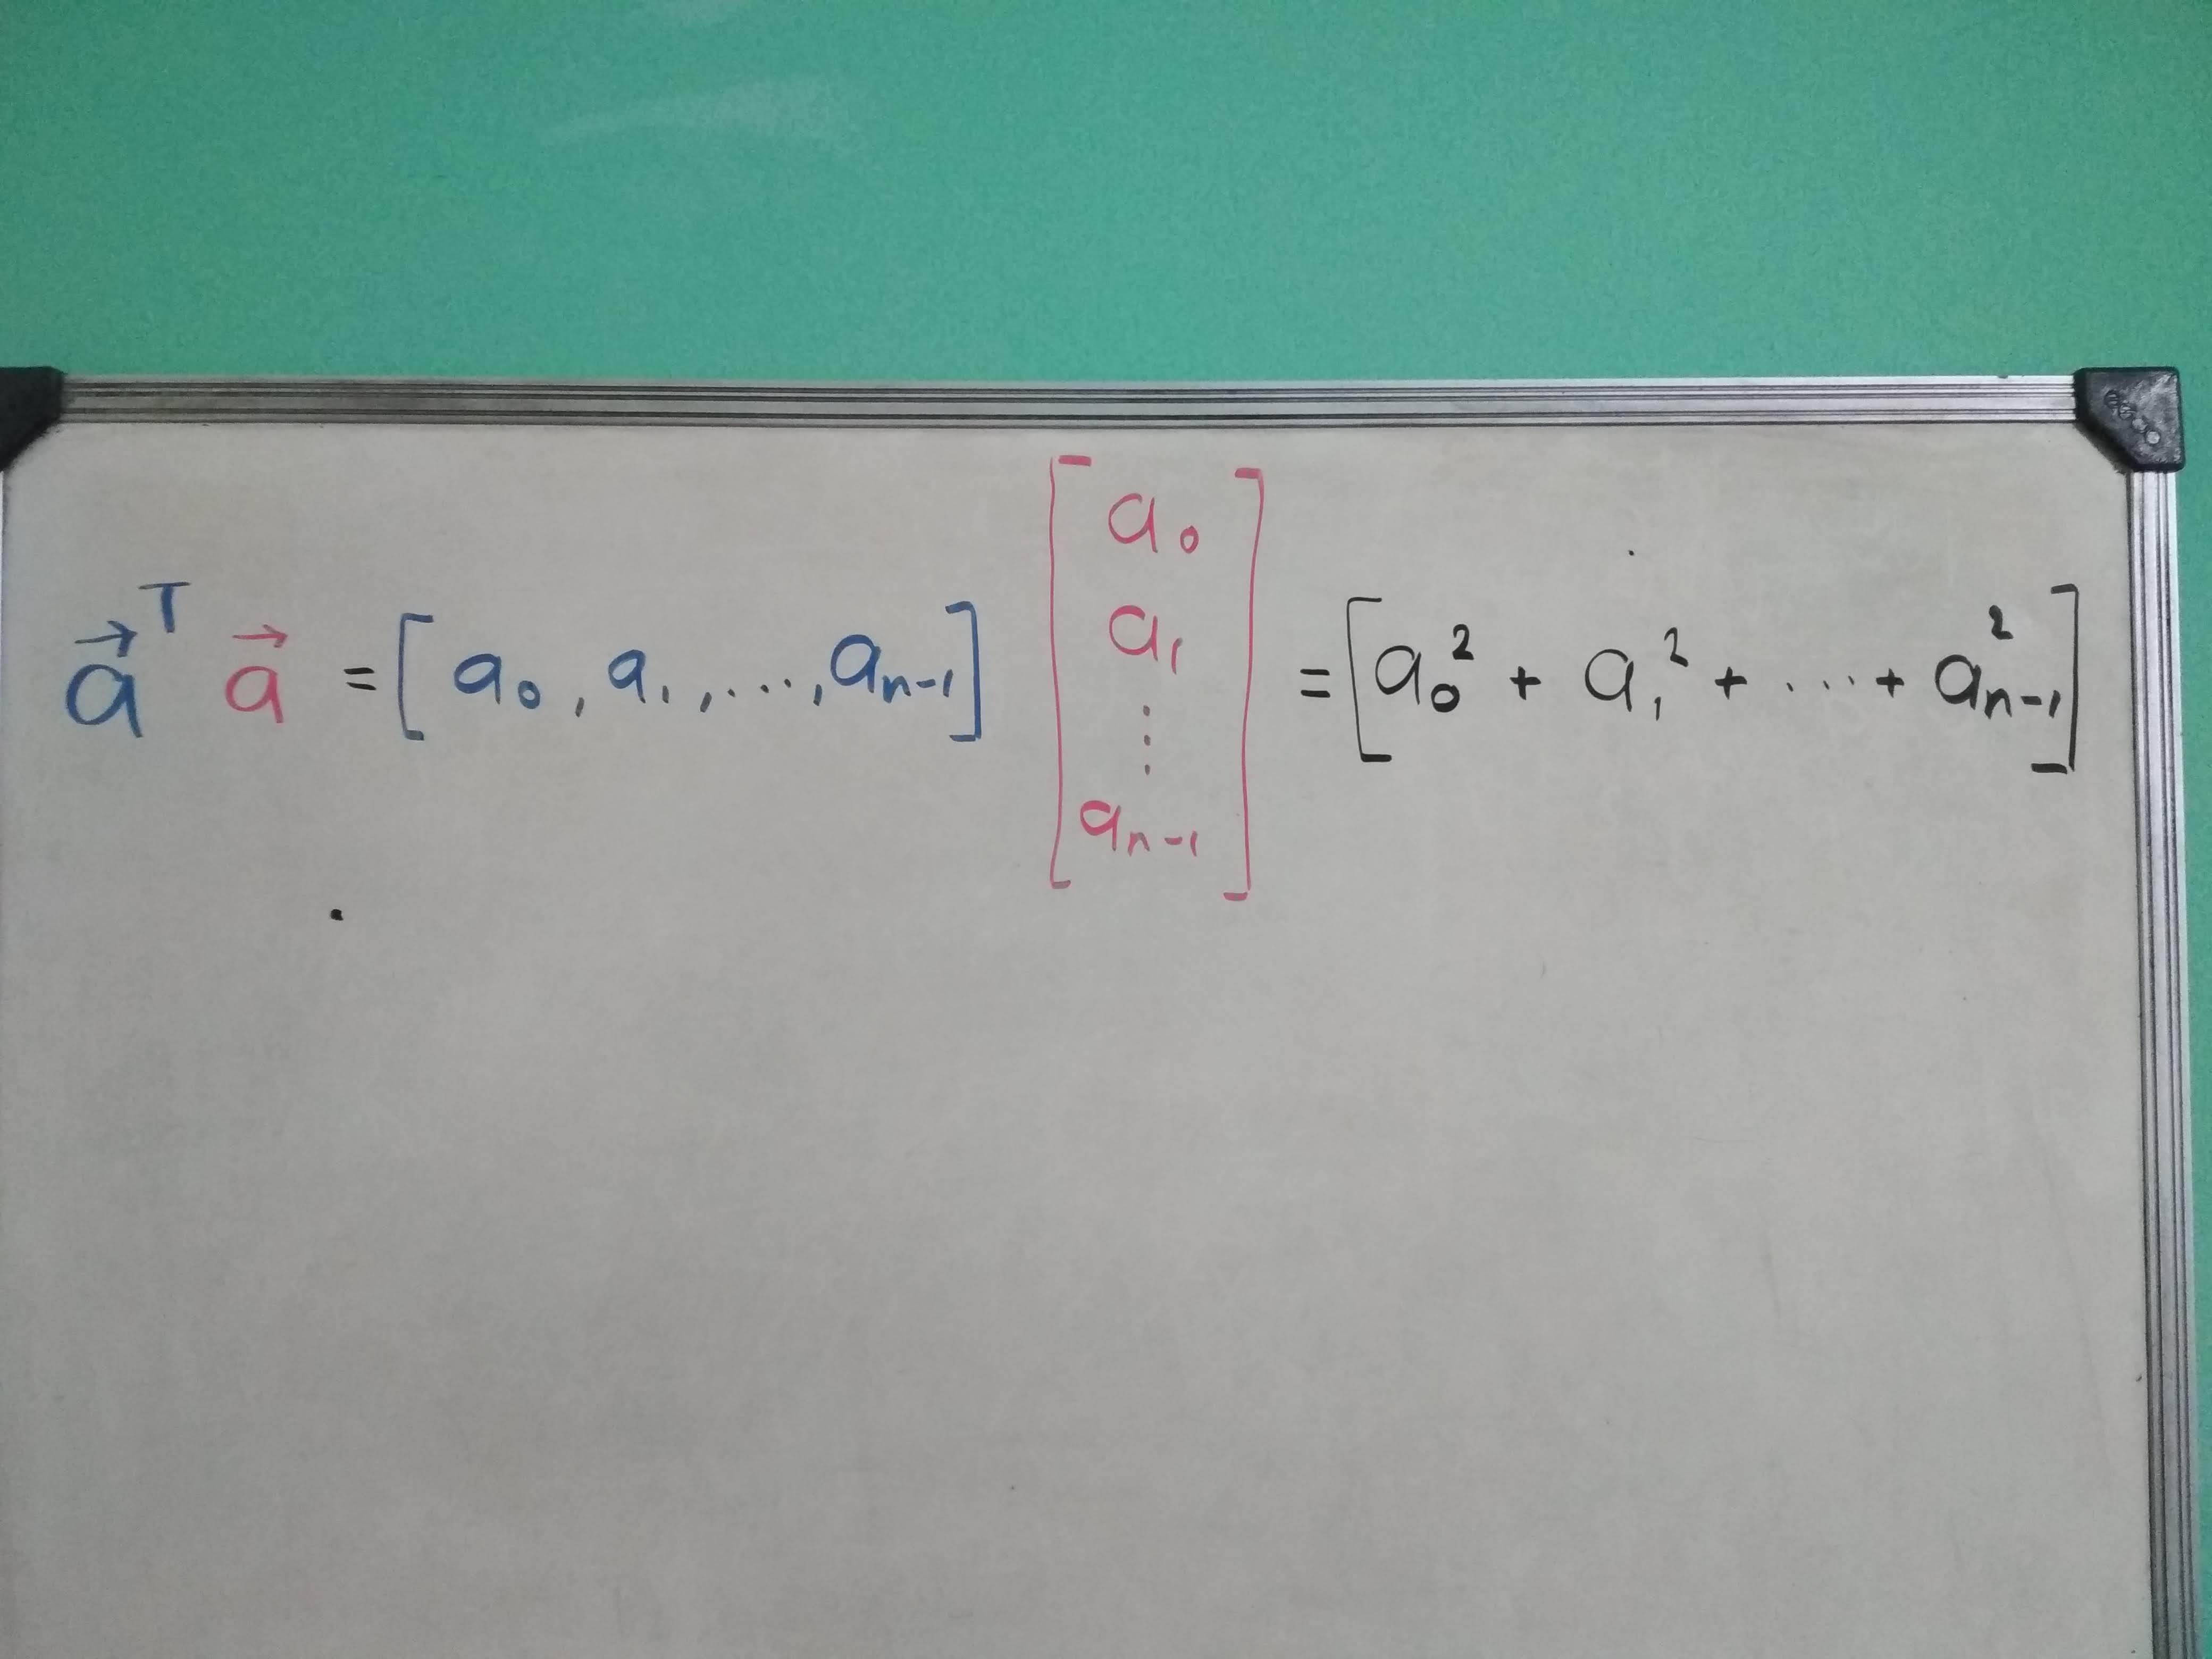 a⃗ᵀ a⃗ = [a₀, a₁, ..., aₙ₋₁] [a₀ a₁ ⋮ aₙ₋₁] = [a₀² + a₁² + ... + aₙ₋₁²]